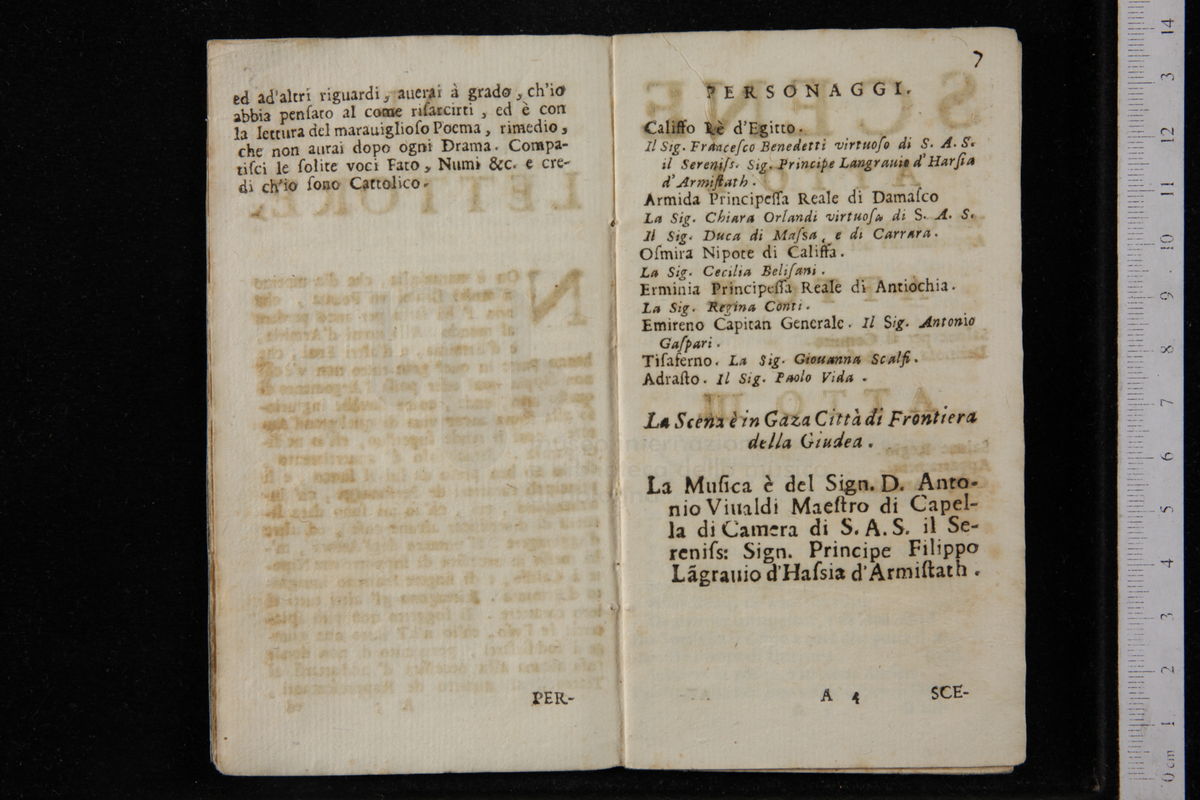 ed ad'altri riguardi, auerai à grado, ch'io
abbia penſato al come riſarcirti, ed è con
la lettura del marauiglioſo Poema, rimedio,
che non aurai dopo ogni Drama. Compa-
tiſci le ſolite voci Fato, Numi &c. e cre-
di ch'io ſono Cattolico.
PER-
7
PERSONAGGI.
Califfo Rè d'Egitto.
Il Sig. Franceſco Benedetti virtuoſo di S. A. S.
il Sereniſs. Sig. Principe Langrauio d'Harſia
d'Armiſtath.
Armida Principeſſa Reale di Damaſco
La Sig. Chiara Orlandi virtuoſa di S. A. S.
Il Sig. Duca di Maſsa, e di Carrara.
Oſmira Nipote di Califfa.
La Sig. Cecilia Beliſani.
Erminia Principeſſa Reale di Antiochia.
La Sig. Regina Conti.
Emireno Capitan Generale. Il Sig. Antonio
Gaſpari.
Tiſaferno. La Sig. Giouanna Scalfi.
Adraſto. Il Sig. Paolo Vida.
La Scena è in Gaza Città di Frontiera
della Giudea.
La Muſica è del Sign. D. Anto-
nio Viualdi Maeſtro di Capel-
la di Camera di S. A. S. il Se-
reniſs: Sign. Principe Filippo
Lãgrauio d'Haſsia d'Armiſtath.
A 4
SCE-